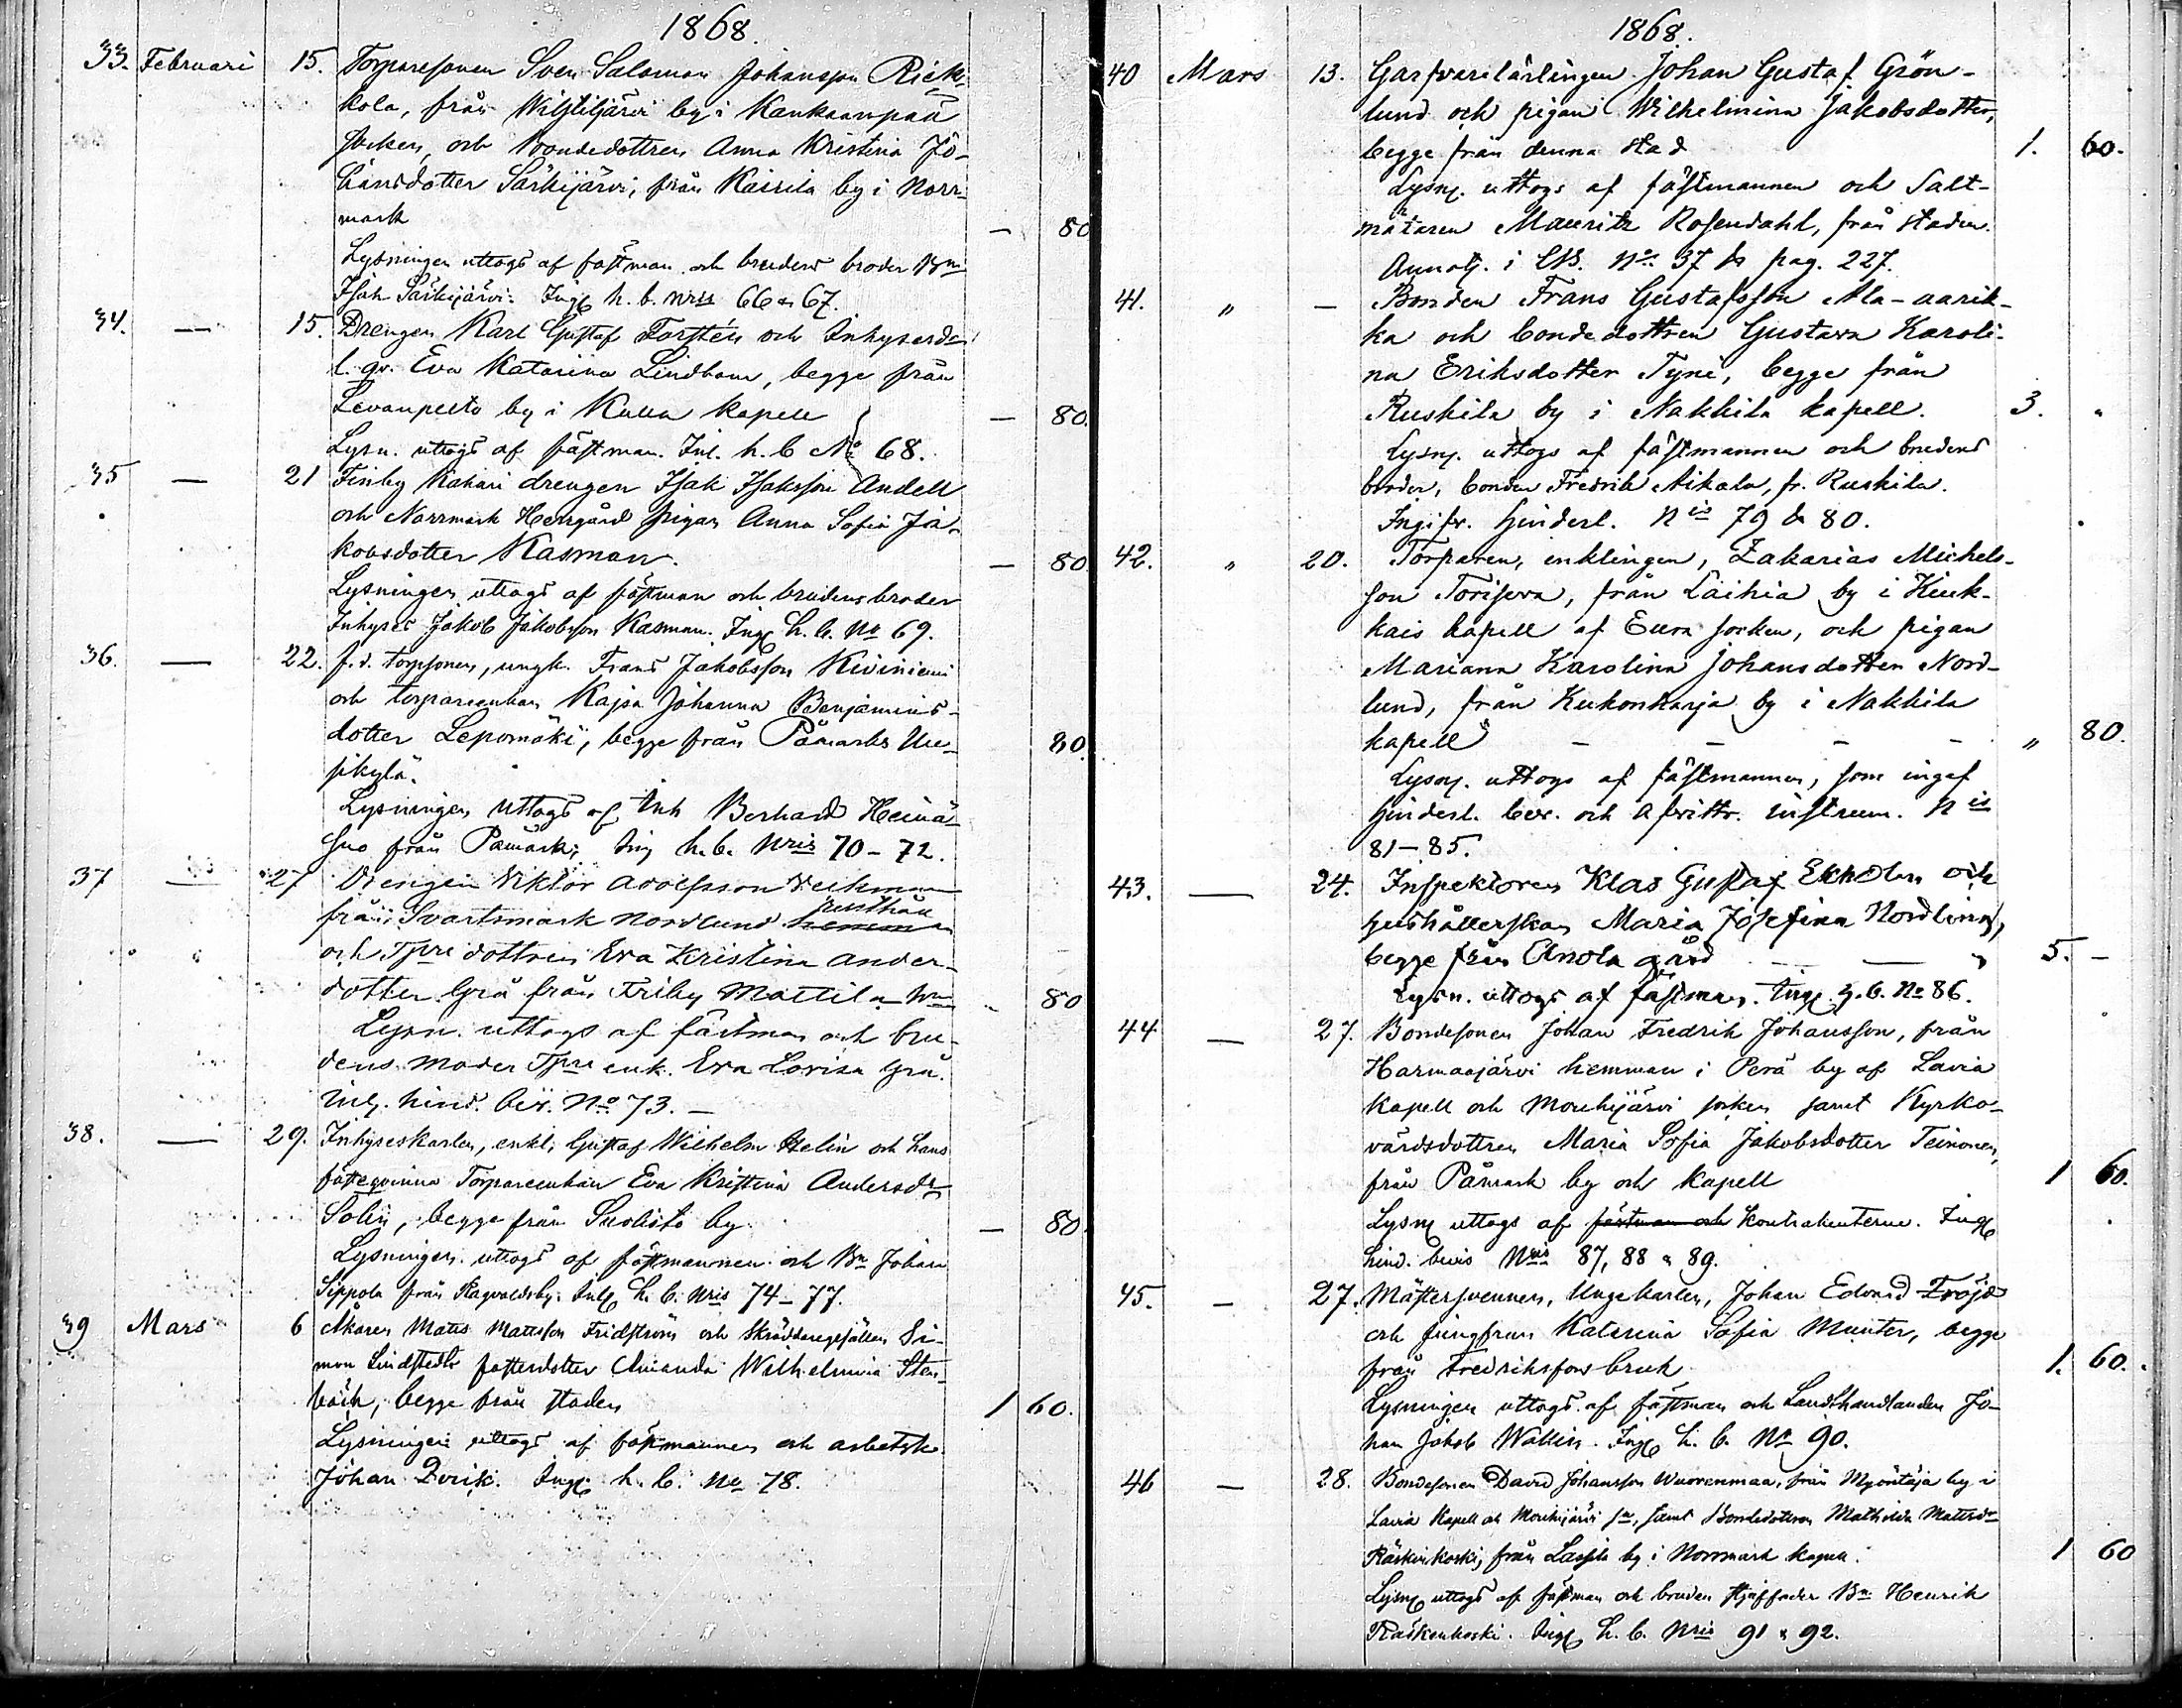 1868.
33. Februari 15. Torparesonen Sven Salomon Johansson Riek-
kola, från by i Kankaanpää
socken, och Bondedottren Anna Kristina Jo-
hansdotter Särkijärvi, från Kairila by i Norr-
mark — 80
Lysningen uttogs af fästman och brudens broder Bn
Isak Särkijärvi. Ing. h. b. nris 66 & 67.
34. — 15. Drengen Karl Gustaf Forstén och Inhysesdr
l. qv. Eva Katarina Lindbom, begge från
Levanpelto by i Kulla kapell — 80.
Lysn. uttogs af fästman. Inl. h. b No 68.
35 — 21 Finby Kahari drengen Isak Isaksson Andell
och Norrmark Herrgård pigan Anna Sofia Ja-
kobsdotter Kasman. — 80
Lysningen uttogs af fästman och brudens broder
Inhyses Jakob Jakobsson Kasman. Ing. h. b. No 69.
36. — 22. f. d. torpsonen, ungk. Frans Jakobsson Kiviniemi
och torpareenkan Kajsa Johanna Benjamins-
dotter Lepomäki, begge från Påmarks Uu-
sikylä. 80.
Lysningen uttogs af Inh Berhard Heinä-
suo från Påmark; Ing h. b. Nris 70 - 72.
37 — 27 Drengen Viktor Adolfsson
rusthåll
från Svartsmark Nordlund
och Tpre dottren Eva Kristina Ander-
dotter Grå från Friby Mattila 80
Lysn. uttogs af fästman och bru-
dens moder Tpre enk. Eva Lovisa Grå.
Inlg. hind. bev. No 73. —
38. — 29. Inhyseskarlen, enkl. Gustaf Wilhelm Helin och hans
fästeqvinna Torpareenkan Eva Kristina Andersdr
begge från Suolisto by. — 80
Lysningen uttogs af fästmannen och Bn Johan
Sippola från Ragvaldsby. Inlg. h. b. nris 74 - 77.
39 Mars 6 Åkaren Mats Mattsson Fridström och Skräddaregesällen Si-
mon Lindstedts fosterdotter Amanda Wilhelmina Sten-
bäck, begge från staden 1 60.
Lysningen uttogs af fästmannen och arbetsk.
Johan Ing. h. b. No 78.
1868.
40 Mars 13. Garfvarilärlingen Johan Gustaf Grön-
lund och pigan Wilhelmina Jakobsdotter,
begge från denna stad 1. 60.
Lysng. uttogs af fästmannen och Salt-
mätaren Mauritz Rosendahl, från staden.
Annotg. i No 37 pag. 227.
41. „ — Bonden Frans Gustafsson Ala-aarik-
ka och bondedottren Gustava Karoli-
na Eriksdotter Tyni, begge från
Ruskila by i Nakkila kapell. 3. „
Lysng. uttogs af fästmannen och brudens
broder, bonden Fredrik Aikala, fr. Ruskila.
Ingifv. hinderl. N is 79 & 80.
42. „ 20. Torparen, enklingen, Zakarias Michels-
son Torisera, från Laihia by i Kiuk-
kais kapell af Eura socken, och pigan
Mariana Karolina Johansdotter Nord-
lund, från Kukonharja by i Nakkila
kapell — — — — „ 80.
Lysng. uttogs af fästmannen, som ingaf
hinderl. bev. och afvittr. instrum. N is
81-85.
43. — 24. Inspektoren Klas Gustaf Ekholm och
hushållerskan Maria Josefina Nordlund,
begge från Anola gård — — 5. —
Lysn. uttogs af fästman. Ing. h. b. No 86.
44 — 27. Bondesonen Johan Fredrik Johansson, från
Harmaajärvi hemman i Perä by af Lavia
Kapell och Mouhijärvi socken samt Kyrko-
värdsdottren Maria Sofia Jakobsdotter Teinonen,
från Påmark by och kapell 1 60.
Lysng uttogs af fästman och Kontrahenterne. Ingg
hind. bevis Nris 87, 88 & 89.
45. — 27. Mästersvennen, Ungekarlen, Johan Edvard Fröjd
och Jungfrun Katarina Sofia Munter, begge
från Fredriksfors bruk 1. 60.
Lysningen uttogs af fästman och Landthandlanden Jo-
han Jakob Wallin. Ing. h. b. No 90.
46 — 28. Bondesonen David Johansson Wuorenmaa, från Myöntäjä by i
Lavia Kapell och Mouhijärvi sn, samt Bondedottren Mathilda Mattsdr
Räskinkoski, från Lassila by i Norrmark kapell. 1 60
Lysng uttogs af fästman och bruden styffader Bn Henrik
Räskenkoski. Ingg h. b. Nris 91 & 92.